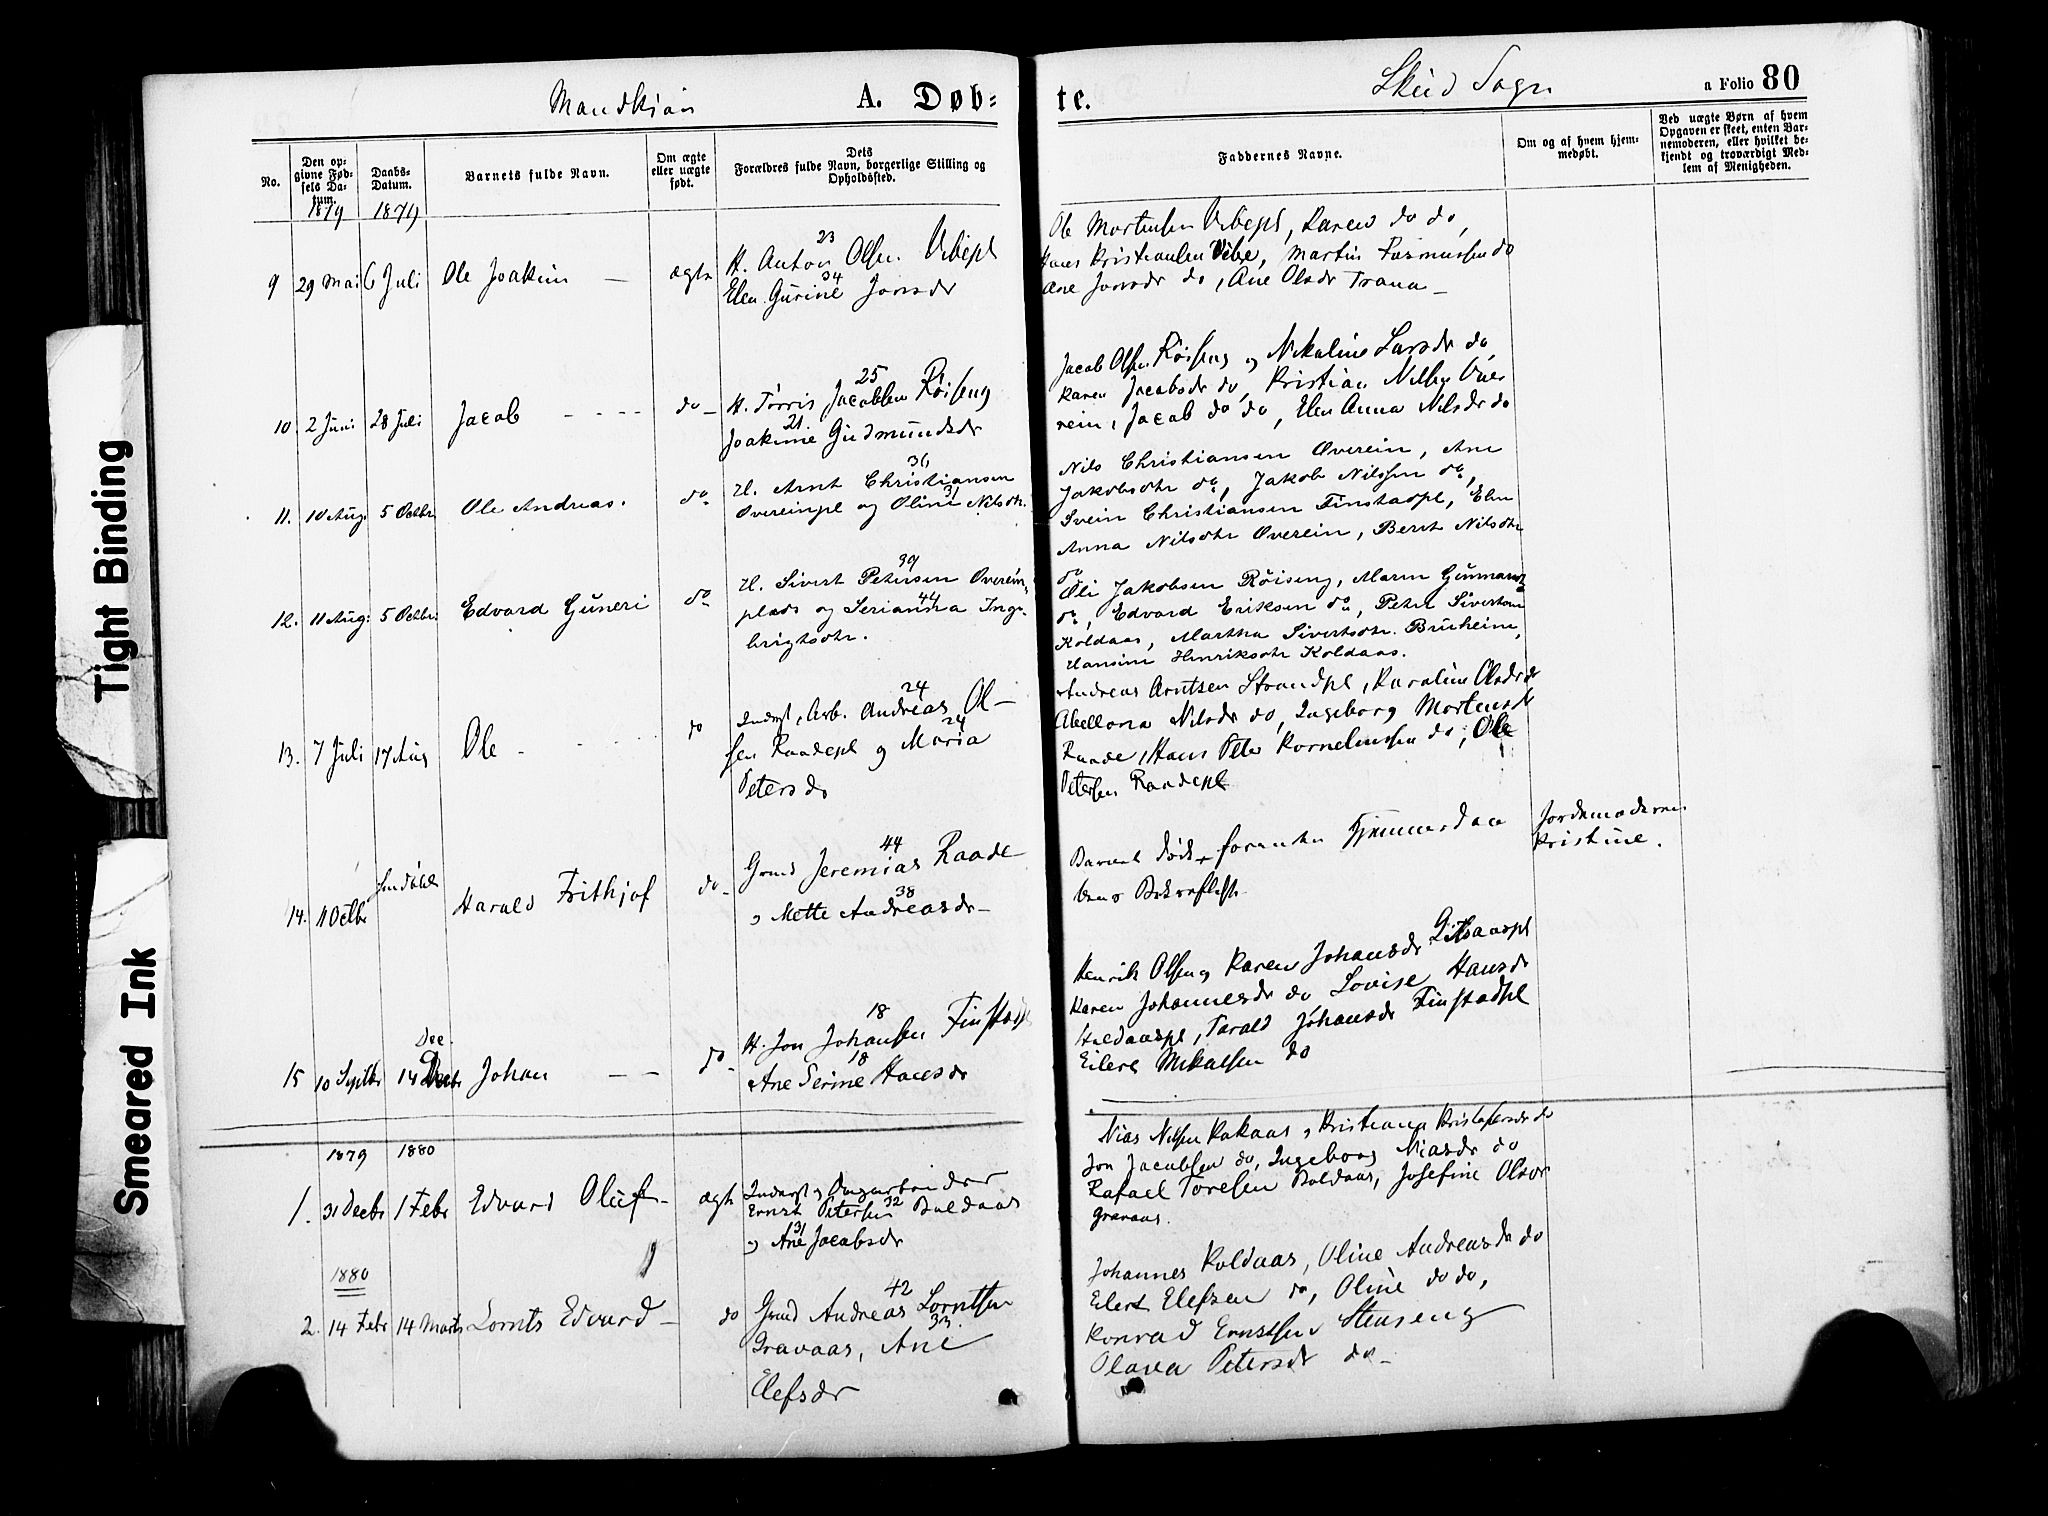 Mandkjøn A. Døb-
te. Skei Sogn a Folio 80
No.
Den op-
givne Fød-
sels Da-
tum.
Daabs-
Datum.
Barnets fulde Navn.
Om ægte
eller uægte
født.
Dets
Forældres fulde Navn, borgerlige Stilling og
Opholdssted.
Faddernes Navne.
Om og af hvem hjem-
medøbt.
Ved uægte Børn af hvem
Opgaven er skeet, enten Bar-
nemoderen, eller hvilket be-
kjendt og troværdigt Med-
lem af Menigheden.
1879 1879
9 29 Mai 6 Juli Ole Joakim — ægte
23
H. Anton Olsen Vibepl
34
Elen Gurine Jonsdr
Ole Mortensen Vibepl, Karen do do,
Hans Kristiansen Vibe, Martin Rasmussen do
Ane Jonsdr do, Ane Olsdr Trana —
10 2 Juni 28 Juli Jacob - - - - do —
25
H. Tørris Jacobsen Røiseng
21
Joakime Gudmundsdr
Jacob Olsen Røiseng og Nikoline Larsdr do,
Karen Jacobsdr do, Kristian Nilsen Øve
rein, Jacob do do, Elen Anna Nilsdr do
11. 10 Aug. 5 Octbr. Ole Andreas. do
36
H. Arnt Christiansen
31
Øvereinpl og Oline Nilsdtr.
Nils Christiansen Øverein, Ane
Jakobsdtr do, Jakob Nilssen do,
Svein Christiansen Finstadpl, Elen
Anna Nilsdtr Øverein, Beret Nilsdtr
do
12. 11 Aug. 5 Octbr. Edvard Guneri do
39
H. Sivert Petersen Øverein
44
plads og Serianna Inge-
brigtsdtr.
Oli Jakobsen Røiseng, Maren Gunnarsdr
do, Edvard Eriksen do, Peter Sivertsen
Koldaas, Martha Sivertsdtr. Bruheim,
Hansine Henriksdtr Koldaas.
13. 7 Juli 17 Aug Ole - do
24
Inderst, Arb. Andreas Ol-
24
sen Raadepl og Maria
Petersdr
Andreas Arntsen Strandpl, Karoline Olsdr do
Abellona Nilsdr do, Ingeborg Mortensdr
Raade, Hans Peter Kornelius­sen do, Ole
Petersen Raadepl
14. 1 Octbr Harald Frithjof do —
44
Grmd Jeremias Raade
38
og Mette Andreasdr —
Barnet døde foruden Hjemmedaa
bens Bekræftelse
Jordemoderen
Kristine.
15 10 Septbr 14 Dec. Johan — — do —
18
H. Jon Johansen Finstadpl
18
Ane Serine Hansdr
Henrik Olsen og Karen Johansdr
Karen Johannesdr do Lovise Hansdr
Tarald Johansdr Finstadpl
Eilert Mikalsen do
1879 1880
1. 31 Decbr 1 Febr Edvard Oluf — ægte
Inderst og Dagarbeider
32
Ernst Petersen Boldaas
31
og Ane Jacobsdr
Nias Nilsen Kakaas, Kristiana Kristofersdr do
Jon Jacobsen do, Ingeborg Niasdr do
Rafael Toresen Boldaas, Josefine Olsdr
Gravaas.
1880
2. 14 Febr 14 Marts Lornts Edvard — do
42
Grmd Andreas Lorntsen
33
Gravaas, Ane
Elefsdr
Johannes Koldaas, Oline Andreasdr do
Eilert Elefsen do, Oline do do,
Konrad Ernstsen Stenseng
Olava Petersdr do —
Tight Binding
Smeared Ink